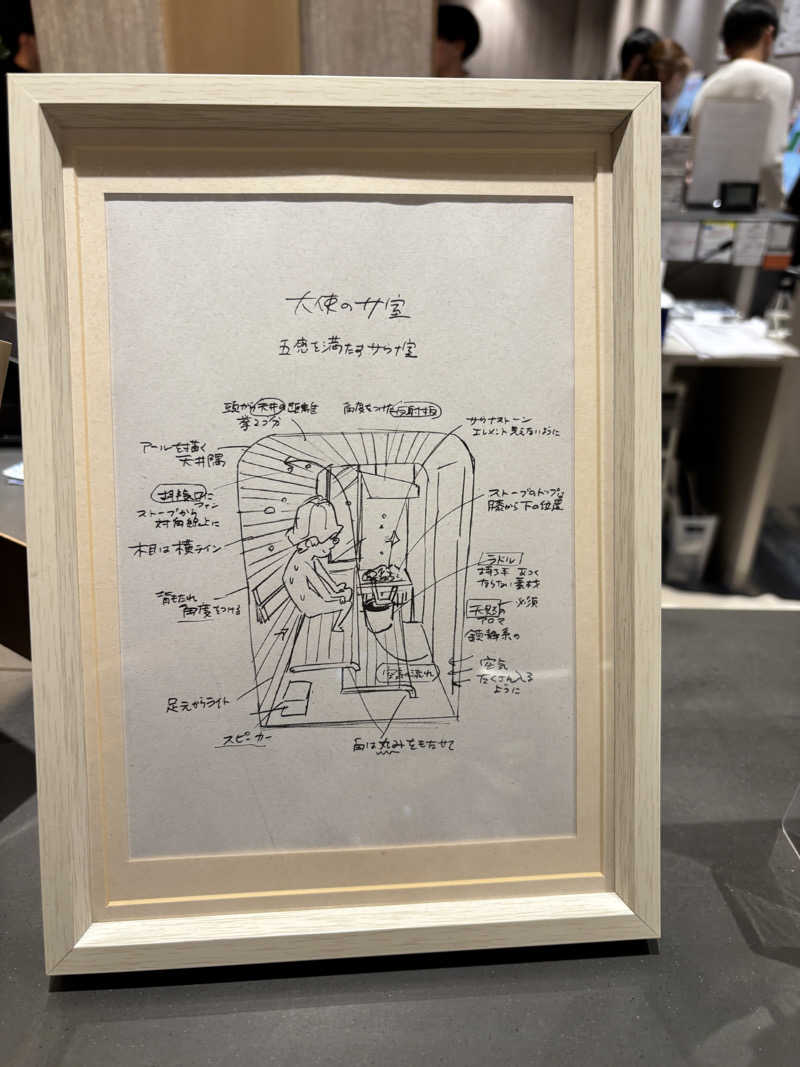 大使のサ室
五感を満たすサウナ室
頭から天井の距離
拳2つ分
角度をつけた反射板
サウナストーン
エレメント見えないように
アールを描く
天井隅
ストーブから
対角線上に
木目は横ライン
ストーブのトップは
膝から下の位置
背もたれ
角度をつける
ラドル
持つ手 あつく
ならない素材
天然の 必須
アロマ
鎮静系の
空気の流れ
空気
たくさん入る
ように
足元からライト
スピーカー
角は丸みをもたせて